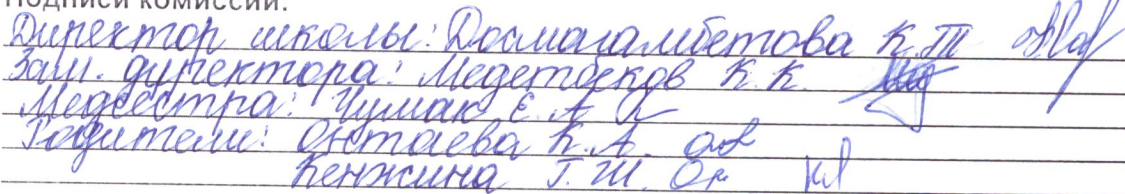 Подписи комиссии:
Директор школы: Досмагамбетова К.Т
Зам. директора: Медетбеков К.К.
Медсестра: Чумак Е.А
Родители: Октаева К.А.
Кенжина Г.Ш.